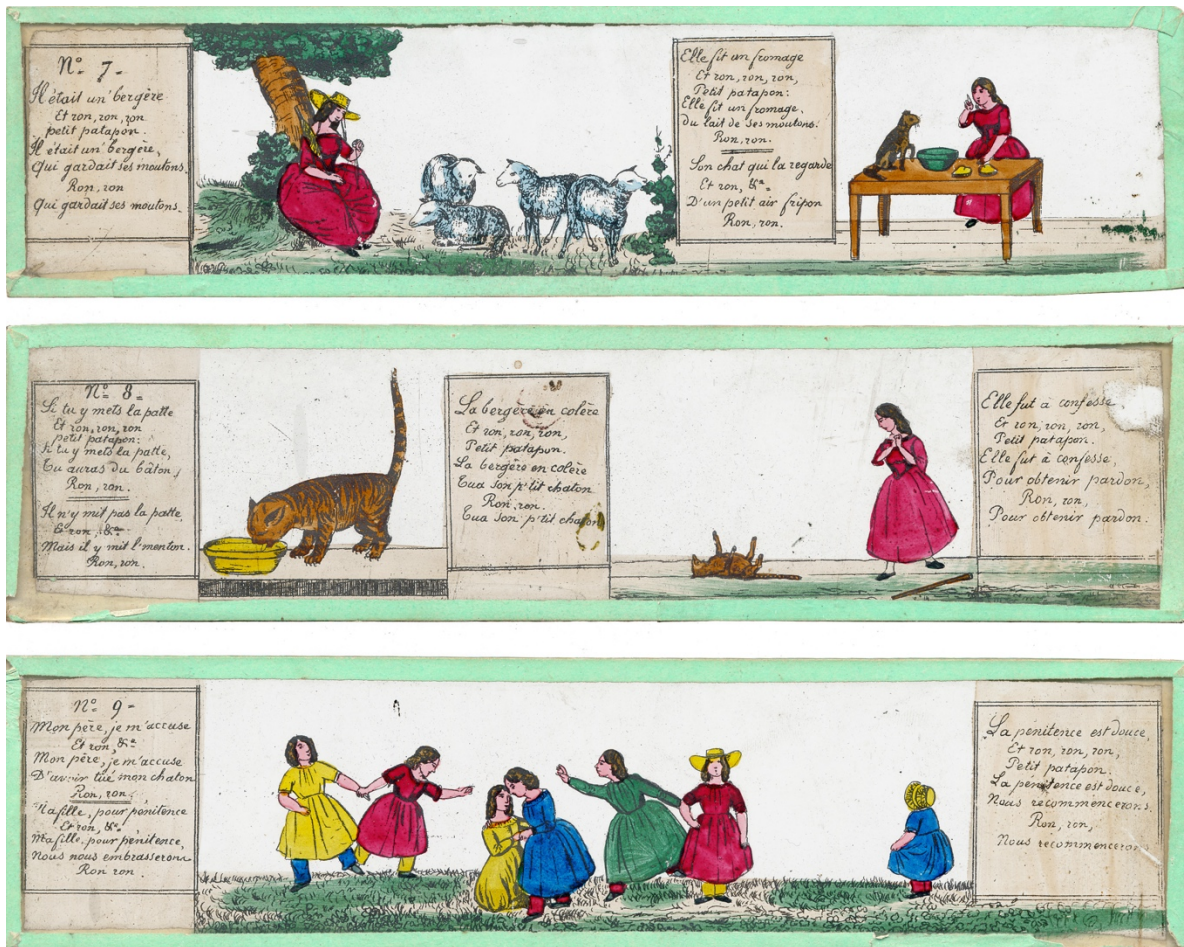 Nº 7=
Il était un' bergère
Et ron, ron, ron
petit patapon.
Il était un' bergère,
Qui gardait ses moutons.
Ron, ron
Qui gardait ses moutons.
Elle fit un fromage
Et ron, ron, ron,
Petit patapon:
Elle fit un fromage.
du lait de ses moutons.
Ron, ron.
Son chat qui la regarde
Et ron, &ª=
D'un petit air fripon
Ron, ron.
Nº 8=
Si tu y mets la patte
Et ron, ron, ron
petit patapon:
Si tu y mets la patte,
Tu auras du bâton,
Ron, ron.
Il n'y mit pas la patte,
Et ron, &ª
Mais il y mit l'menton.
Ron, ron.
La bergère en colère
Et ron, ron, ron,
Petit patapon.
La bergère en colère
Tua son p'tit chaton
Ron, ron.
Tua son p'tit chaton
Elle fut à confesse
Et ron, ron, ron,
Petit patapon.
Elle fut à confesse,
Pour obtenir pardon,
Ron, ron,
Pour obtenir pardon.
Nº 9=
Mon père, je m'accuse
Et ron, &ª
Mon père, je m'accuse
D'avoir tué mon chaton
Ron, ron.
Ma fille, pour pénitence
Et ron, &ª
Ma fille, pour pénitence,
Nous nous embrasserons
Ron ron.
La pénitence est douce,
Et ron, ron, ron,
Petit patapon.
La pénitence est douce,
Nous recommencerons.
Ron, ron,
Nous recommencerons